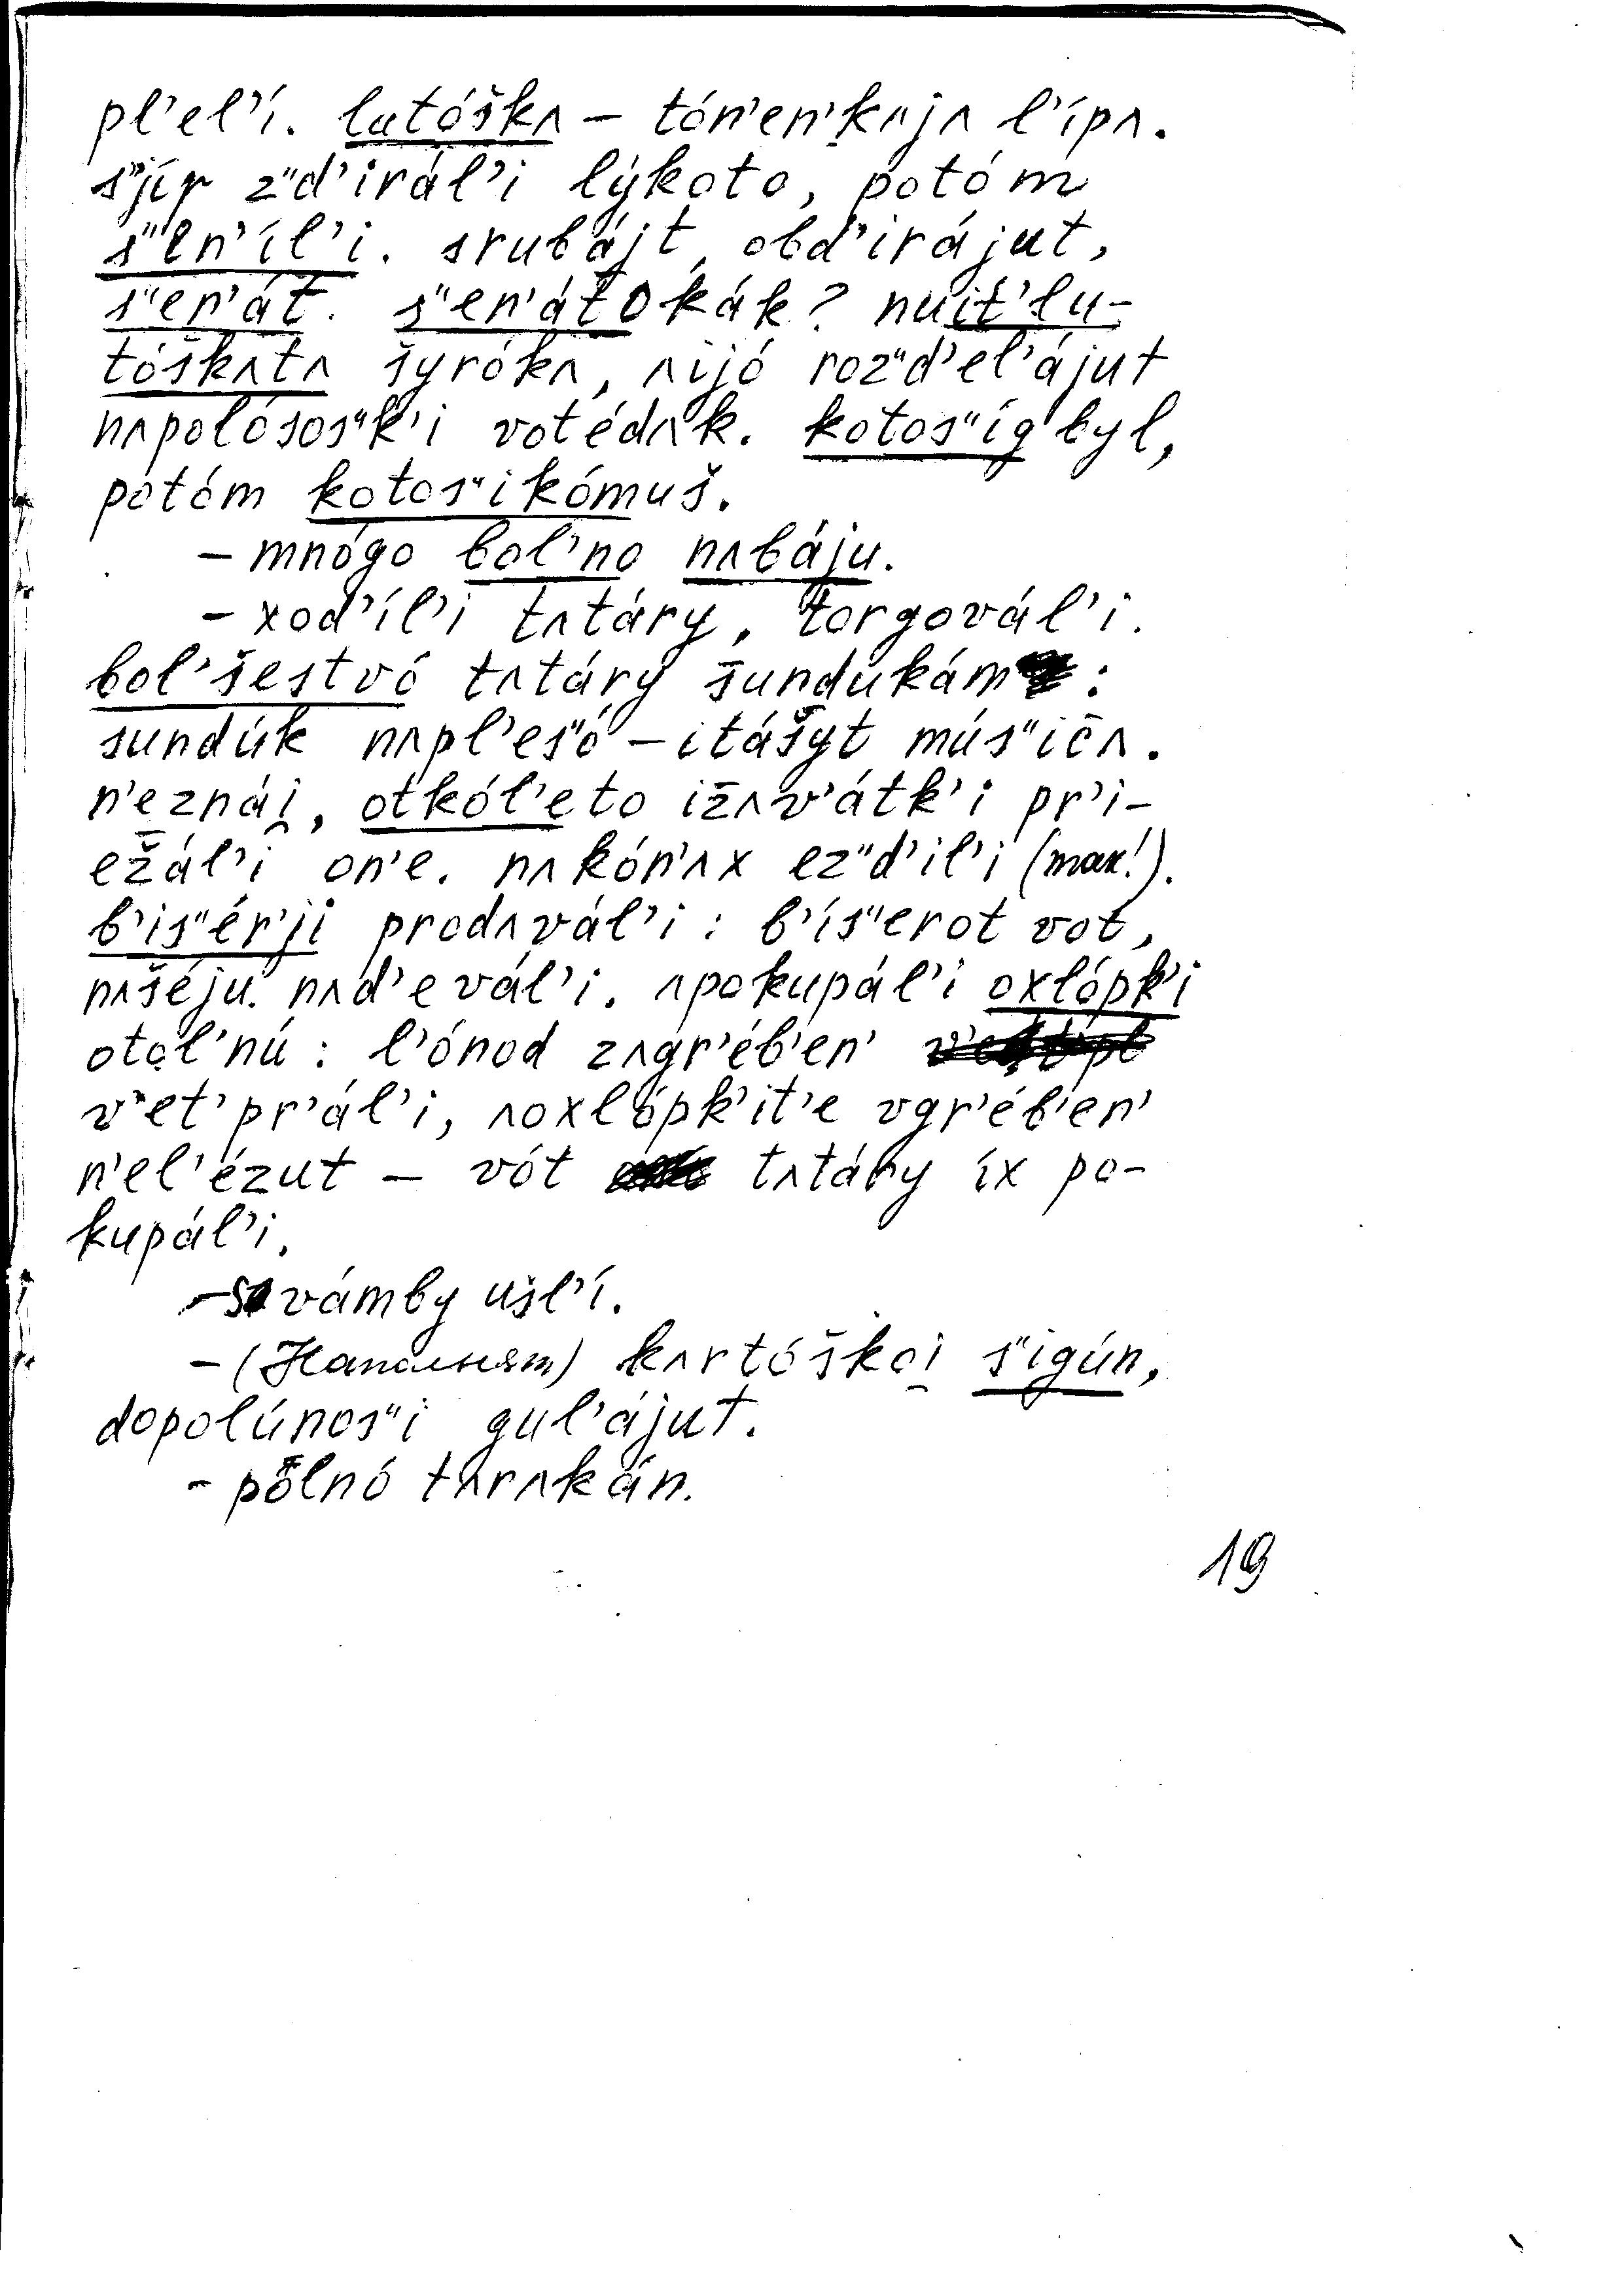 pl’el’í. lutóškʌ – tón’en’kʌjʌ l’ípʌ.
s”jír z”d’irál’i lýkoto, potóm
s”en’íl’i. srubájt, obd’irájut,
s”en’át. s”en’áto kák? nuit’lu-
tóškʌtʌ šyrókʌ, ʌijó roz”d’el’ájut
nʌpolósos”k’i votédʌk. kotos”íg byl,
potóm kotos”ikómuš.
– mnógo bol’no nʌbáju.
– xod’íl’i tʌtáry, torgovál’i.
bol’šestvó tʌtáry šundukám :
sundúk nʌpl’es”ó – itášyt mús”ičʌ.
n’eznái̯, otkól’eto ižʌv’átk’i pr’i-
ežál’i on’e. nʌkón’ʌx ez”d’il’i (так!).
b’is”ér’ji prodʌvál’i : b’ís”erot vot,
nʌšéju nʌd’evál’i. ʌpokupál’i oxlópk’i
otol’nú : l’ónod zʌgr’éb’en’
v’et’ pr’ál’i, ʌoxlópk’it’e vgr’éb’en’
n’el’ézut – vót tʌtáry íx po-
kupál’i.
– s vámby ušl’í.
– (Наполнят) kʌrtóškoi̯ s”igún,
dopolúnos”i gul’ájut.
– polnó tʌrʌkán.
19